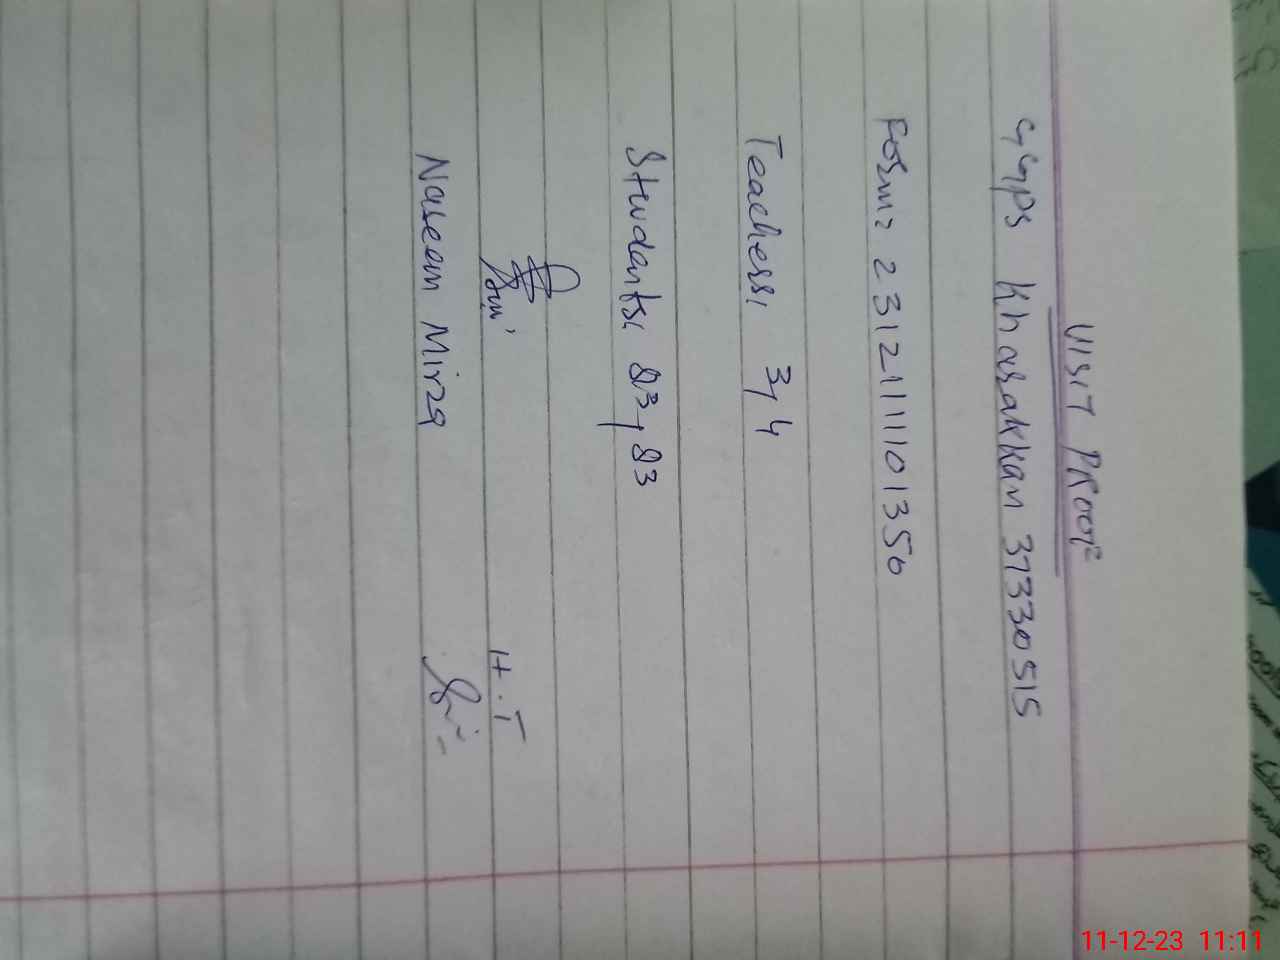 VISIT PROOF
GGPS Kharakkan 37330515
Form: 231211101350
Teachers: 3, 4
Students: 83, 83
H.T
Naseem Mirza
11-12-23 11:11